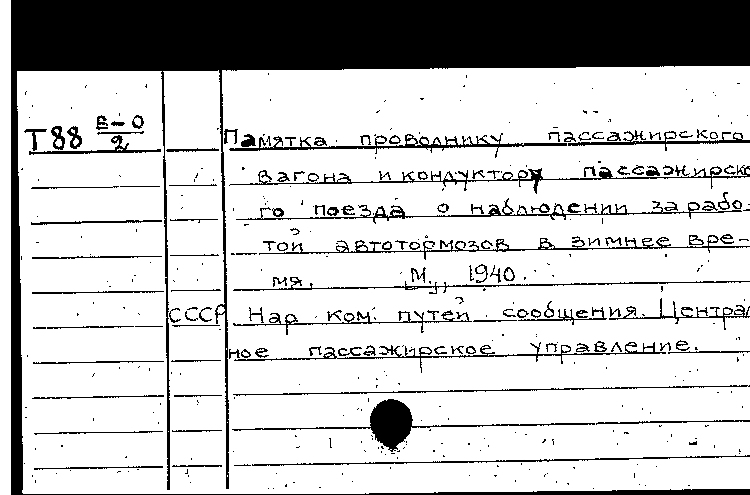 Т88 В-О/2 Памятка проводнику пассажирского
вагона и кондуктору пассажирско
го поезда о наблюдении за рабо-
той автотормозов в зимнее вре-
мя. М., 1940.
СССР Нар ком. путей сообщения. Централ
ное пассажирское управление.